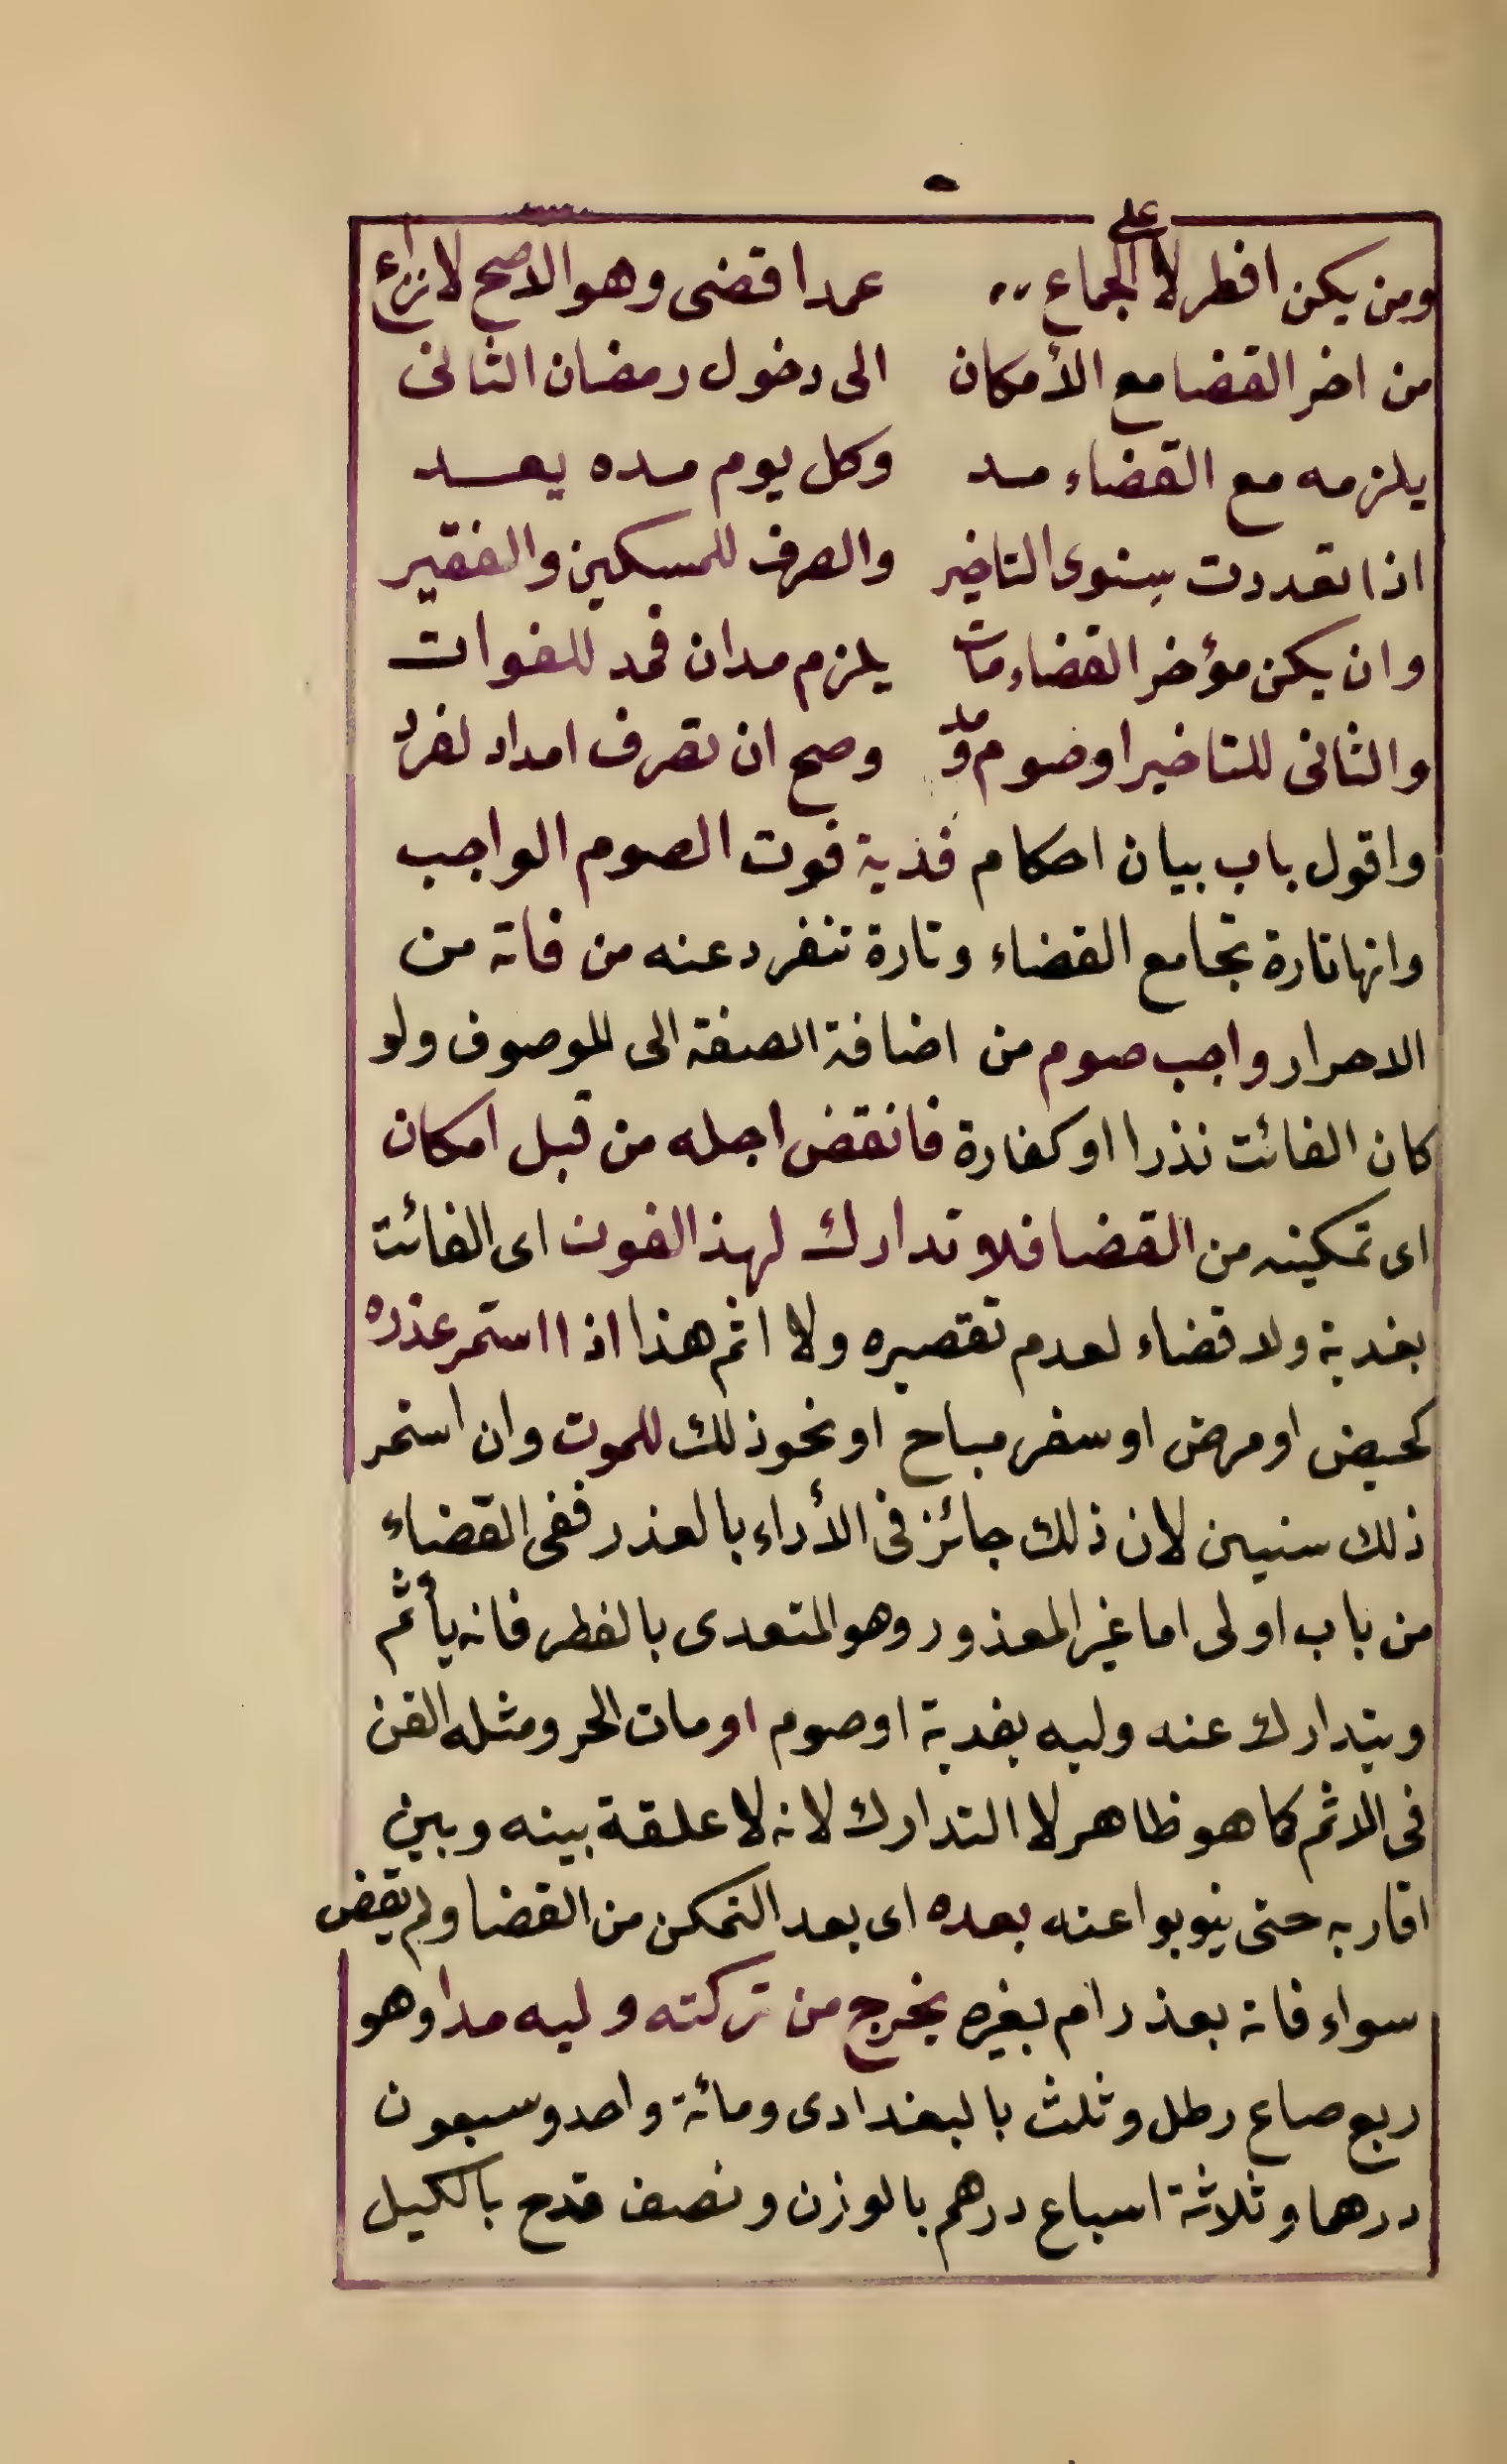 ومن يكن افطر لا على الجماع عمدا قضى وهو الاصح لا نزاع
من اخر القضا مع الأمكان الى دخول رمضان الثانى
يلزمه مع القضاء مد وكل يوم مده يعد
اذا تعددت سنوى التاخير والصرف للمسكين والفقير
وان يكن مؤخر القضاء مات يلزم مدان فمد للفوات
والثانى للتاخير او صوم وقد وصح ان تصرف امداد لفرد
واقول باب بيان احكام فدية فوت الصوم الواجب
وانها تارة تجامع القضاء وتارة تنفرد عنه من فاته من
الاحرار واجب صوم من اضافة الصفة الى الموصوف ولو
كان الفائت نذرا او كفارة فانقض اجله من قبل امكان
اى تمكينه من القضا فلا تدارك لهذا الفوت اى الفائت
بفدية ولا قضاء لعدم تقصيره ولا اثم هذا اذا استمر عذره
كحيض او مرض او سفر مباح او نحو ذلك للموت وان استمر
ذلك سنين لان ذلك جائز فى الأداء بالعذر ففى القضاء
من باب اولى اما غير المعذور وهو المتعدى بالفطر فانه يأثم
ويتدارك عنه وليه بفدية او صوم او مات الحر ومثله القن
فى الاثم كما هو ظاهر لا التدارك لانه لا علقة بينه وبين
اقاربه حتى ينوبوا عنه بعده اى بعد التمكن من القضا ولم يقض
سواء فاته بعذر ام بغيره يخرج من تركته وليه مدا وهو
ربع صاع رطل وثلث بالبغدادى ومائة واحد وسبعون
درهما وثلاثة اسباع درهم بالوزن ونصف قدح بالكيل